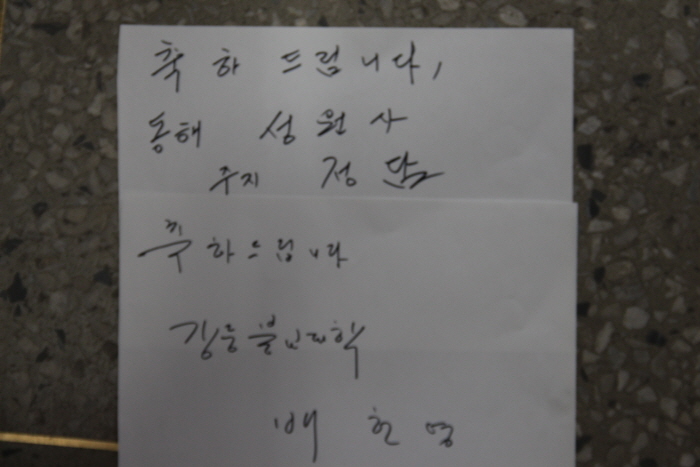 축하 드립니다,
동해 성원사
주지 정담
축하드립니다
강릉불교대학
백헌영